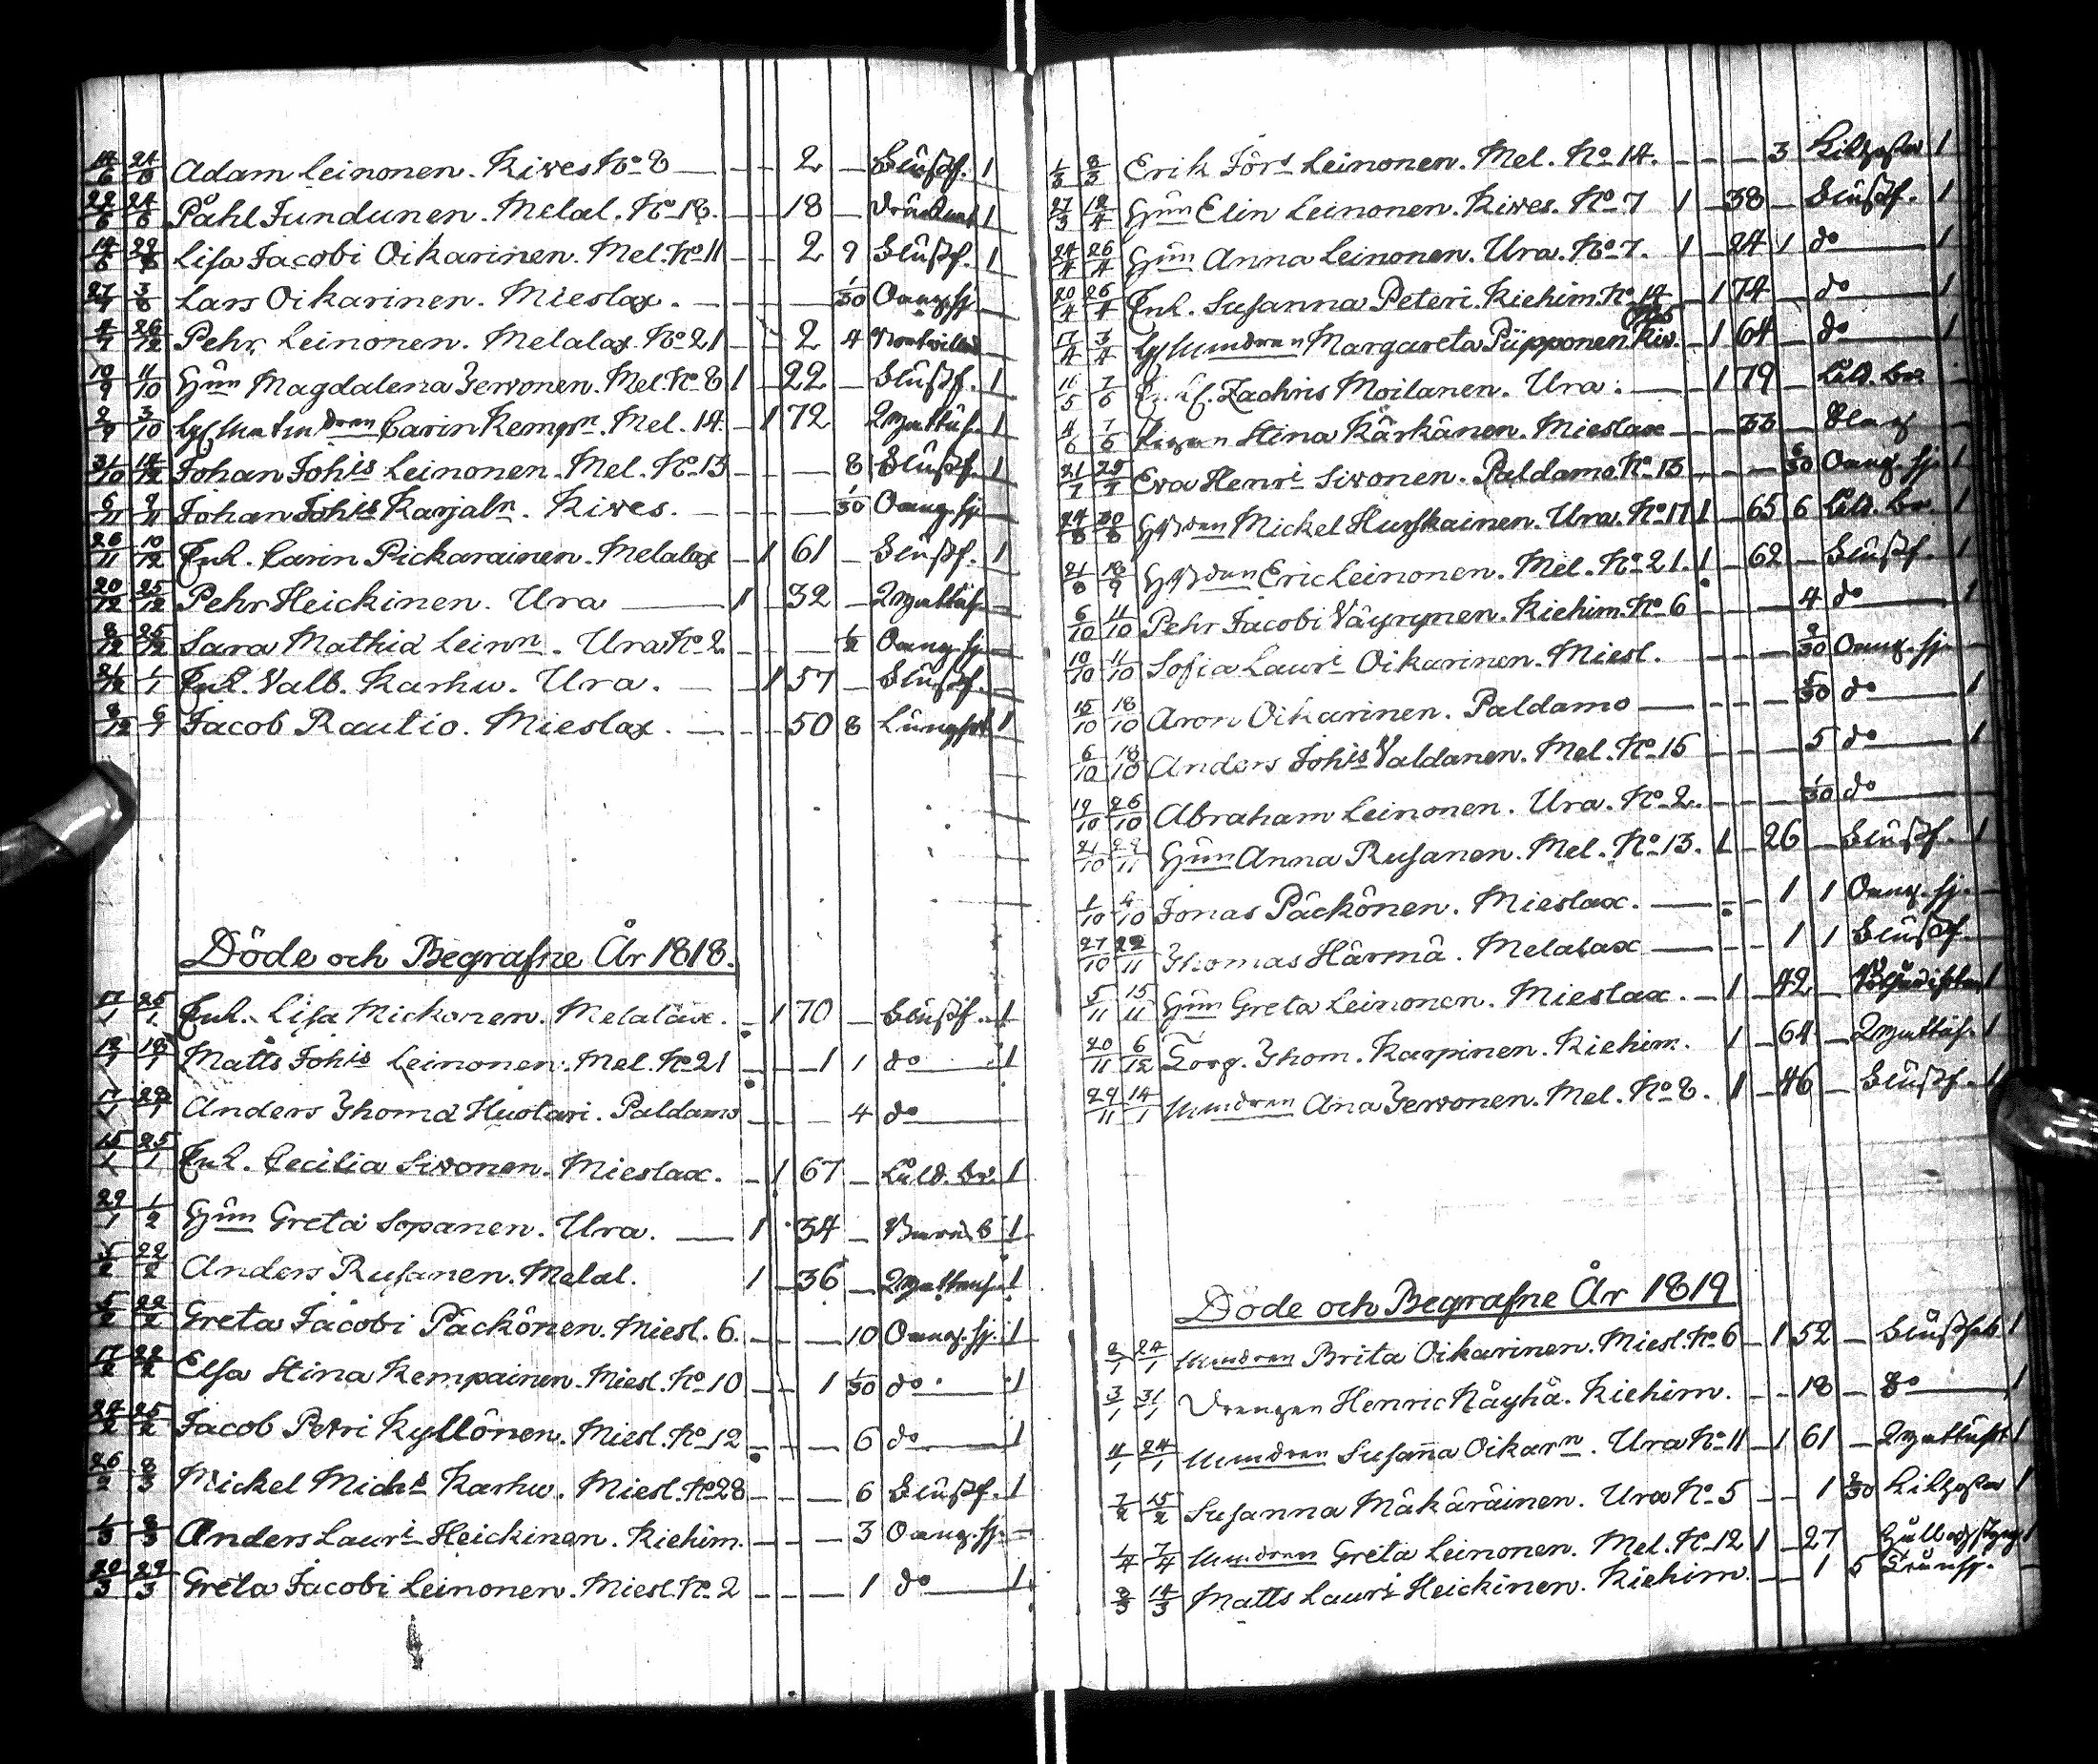 14/6 24/8 Adam Leinonen. Kives No 8 — — 2 — Slußf. 1
22/6 24/6 Påhl Jundunen. Melal. No 18. — 18 — Drunknat 1
14/6 Lisa Jacobi Oikarinen. Mel. No 11 — — 2 9 Slußf. 1
27/7 3/8 Lars Oikarinen. Mieslax. — — — 1/30 Oang. sj.
4/7 26/12 Pehr Leinonen. Melalax No 21 — — 2 4
10/9 11/10 Hûn Magdalena Jervonen. Mel. No 8 1 — 22 — Slußf. 1
2/9 3/10 Carin Kempn. Mel. 14. — 1 72 1
31/10 14/12 Johan Johis Leinonen. Mel. No 13 — — — 8 Slußf. 1
6/11 9/11 Johan Johis Karjaln. Kives. — — — 1/30 Oang. sj.
26/11 10/12 Enk. Carin Pickarainen. Melalax — 1 61 — Slußf. 1
20/12 25/12 Pehr Heickinen. Ura — 1 — 32 —
8/12 25/12 Sara Mathiæ Leinn. Ura No 2 — — 1/2 Oang. sj.
21/12 1/1 Enk. Valb. Karhu. Ura. — 1 57 — Slußf.
8/12 6/1 Jacob Rautio. Mieslax. — — 50 8 Lungsot 1
Döde och Begrafne År 1818.
17/1 25/1 Enk. Lisa Mickonen. Melalax. — 1 70 — Slußf. 1
12/1 18/1 Matts Johis Leinonen. Mel. No 21 — — 1 1 do 1
17/1 Anders Thomæ Huotari. Paldamo — — — 4 do
15/1 25/1 Enk. Cecilia Sivonen. Mieslax. — 1 67 — Åld. br. 1
29/1 1/2 Hûn Greta Sopanen. Ura. — 1 34 — 1
5/2 22/2 Anders Rusanen. Melal. 1 — 36 — 1
5/2 22/2 Greta Jacobi Päckönen. Miesl. 6. — — — 10 Oang. sj. 1
17/2 22/2 Elsa Stina Kempainen. Miesl. No 10 — — 1 1/30 do 1
24/2 25/2 Jacob Petri Kyllönen. Miesl. No 12 — — — 6 do 1
26/2 8/3 Mickel Michs Karhu. Miesl. No 28 — — — 6 Slußf. 1
1/3 8/3 Anders Lauri Heickinen. Kiehim. — — — 3 Oang. sj. —
20/3 29/3 Greta Jacobi Leinonen. Miesl. No 2 — — — 1 do 1
1/3 8/3 Erik Jörs Leinonen. Mel. No 14. — — — 3 1
27/3 12/4 Hûn Elin Leinonen. Kives. No 7 1 — 38 — Slußf. 1
24/4 26/4 Hûn Anna Leinonen. Ura. No 7. 1 — 24 1 do 1
20/4 26/4 Enk. Susanna Peteri. Kiehim. No 14 — 1 74 — do 1
17/4 3/4 Margareta Püpponen. Kiv. — 1 64 — do 1
11/5 7/6 Zachris Moilanen. Ura. — 1 79 — Åld. br.
4/6 7/6 Pigan Stina Kärkänen. Mieslax — — 33 —
21/7 Eva Henri Sivonen. Paldamo. No 13 — — — 6/30 Oang. sj. 1
24/8 30/8 Mickel Huyskainen. Ura. No 17 1 — 65 6 Åld. br. 1
21/8 13/9 Eric Leinonen. Mel. No 21. 1 — 62 — Slußf. 1
6/10 11/10 Pehr Jacobi Väyrynen. Kiehim. No 6 — — — 4 do 1
10/10 11/10 Sofia Lauri Oikarinen. Miesl. — — — 9/30 Oang. sj. —
15/10 18/10 Aron Oikarinen. Paldamo — — — 5/30 do 1
6/10 18/10 Anders Johis Valdanen. Mel. No 15 — — — 5 do 1
19/10 26/10 Abraham Leinonen. Ura. No 2. — — — 1/30 do
21/10 Hûn Anna Rusanen. Mel. No 13. 1 — 26 — Slußf. 1
1/10 4/10 Jonas Päckönen. Mieslax. — — 1 1 Oang. sj. —
27/10 22/11 Thomas Härmä. Melalax — — 1 1 Slußf.
5/11 15/11 Hûn Greta Leinonen. Mieslax. — 1 — 42 — 1
20/11 6/12 Torp. Thom. Karpinen. Kiehim. 1 — 64 — 1
29/11 14/1 Ana Jervonen. Mel. No 8. 1 — 46 — Slußf. 1
Döde och Begrafne År 1819
2/1 24/1 Brita Oikarinen. Miesl. No 6 — 1 52 — 1
3/1 31/1 Drengen Henric Näyhä. Kiehim. — — 18 — do 1
4/1 24/1 Susanna Oikarn. Ura No 11 — 1 61 — 1
7/2 15/2 Susanna Mäkäräinen. Ura No 5 — — 1 1
1/4 7/4 Greta Leinonen. Mel. No 12 1 — 27 1
8/3 14/3 Matts Lauri Heickinen. Kiehim. — — 1 5